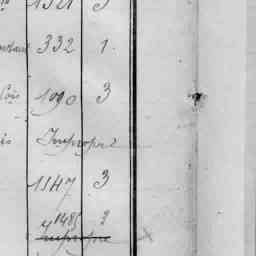 1321 3
332 1.
1090 3
Impropre
1147 3
1485 3
Impropre